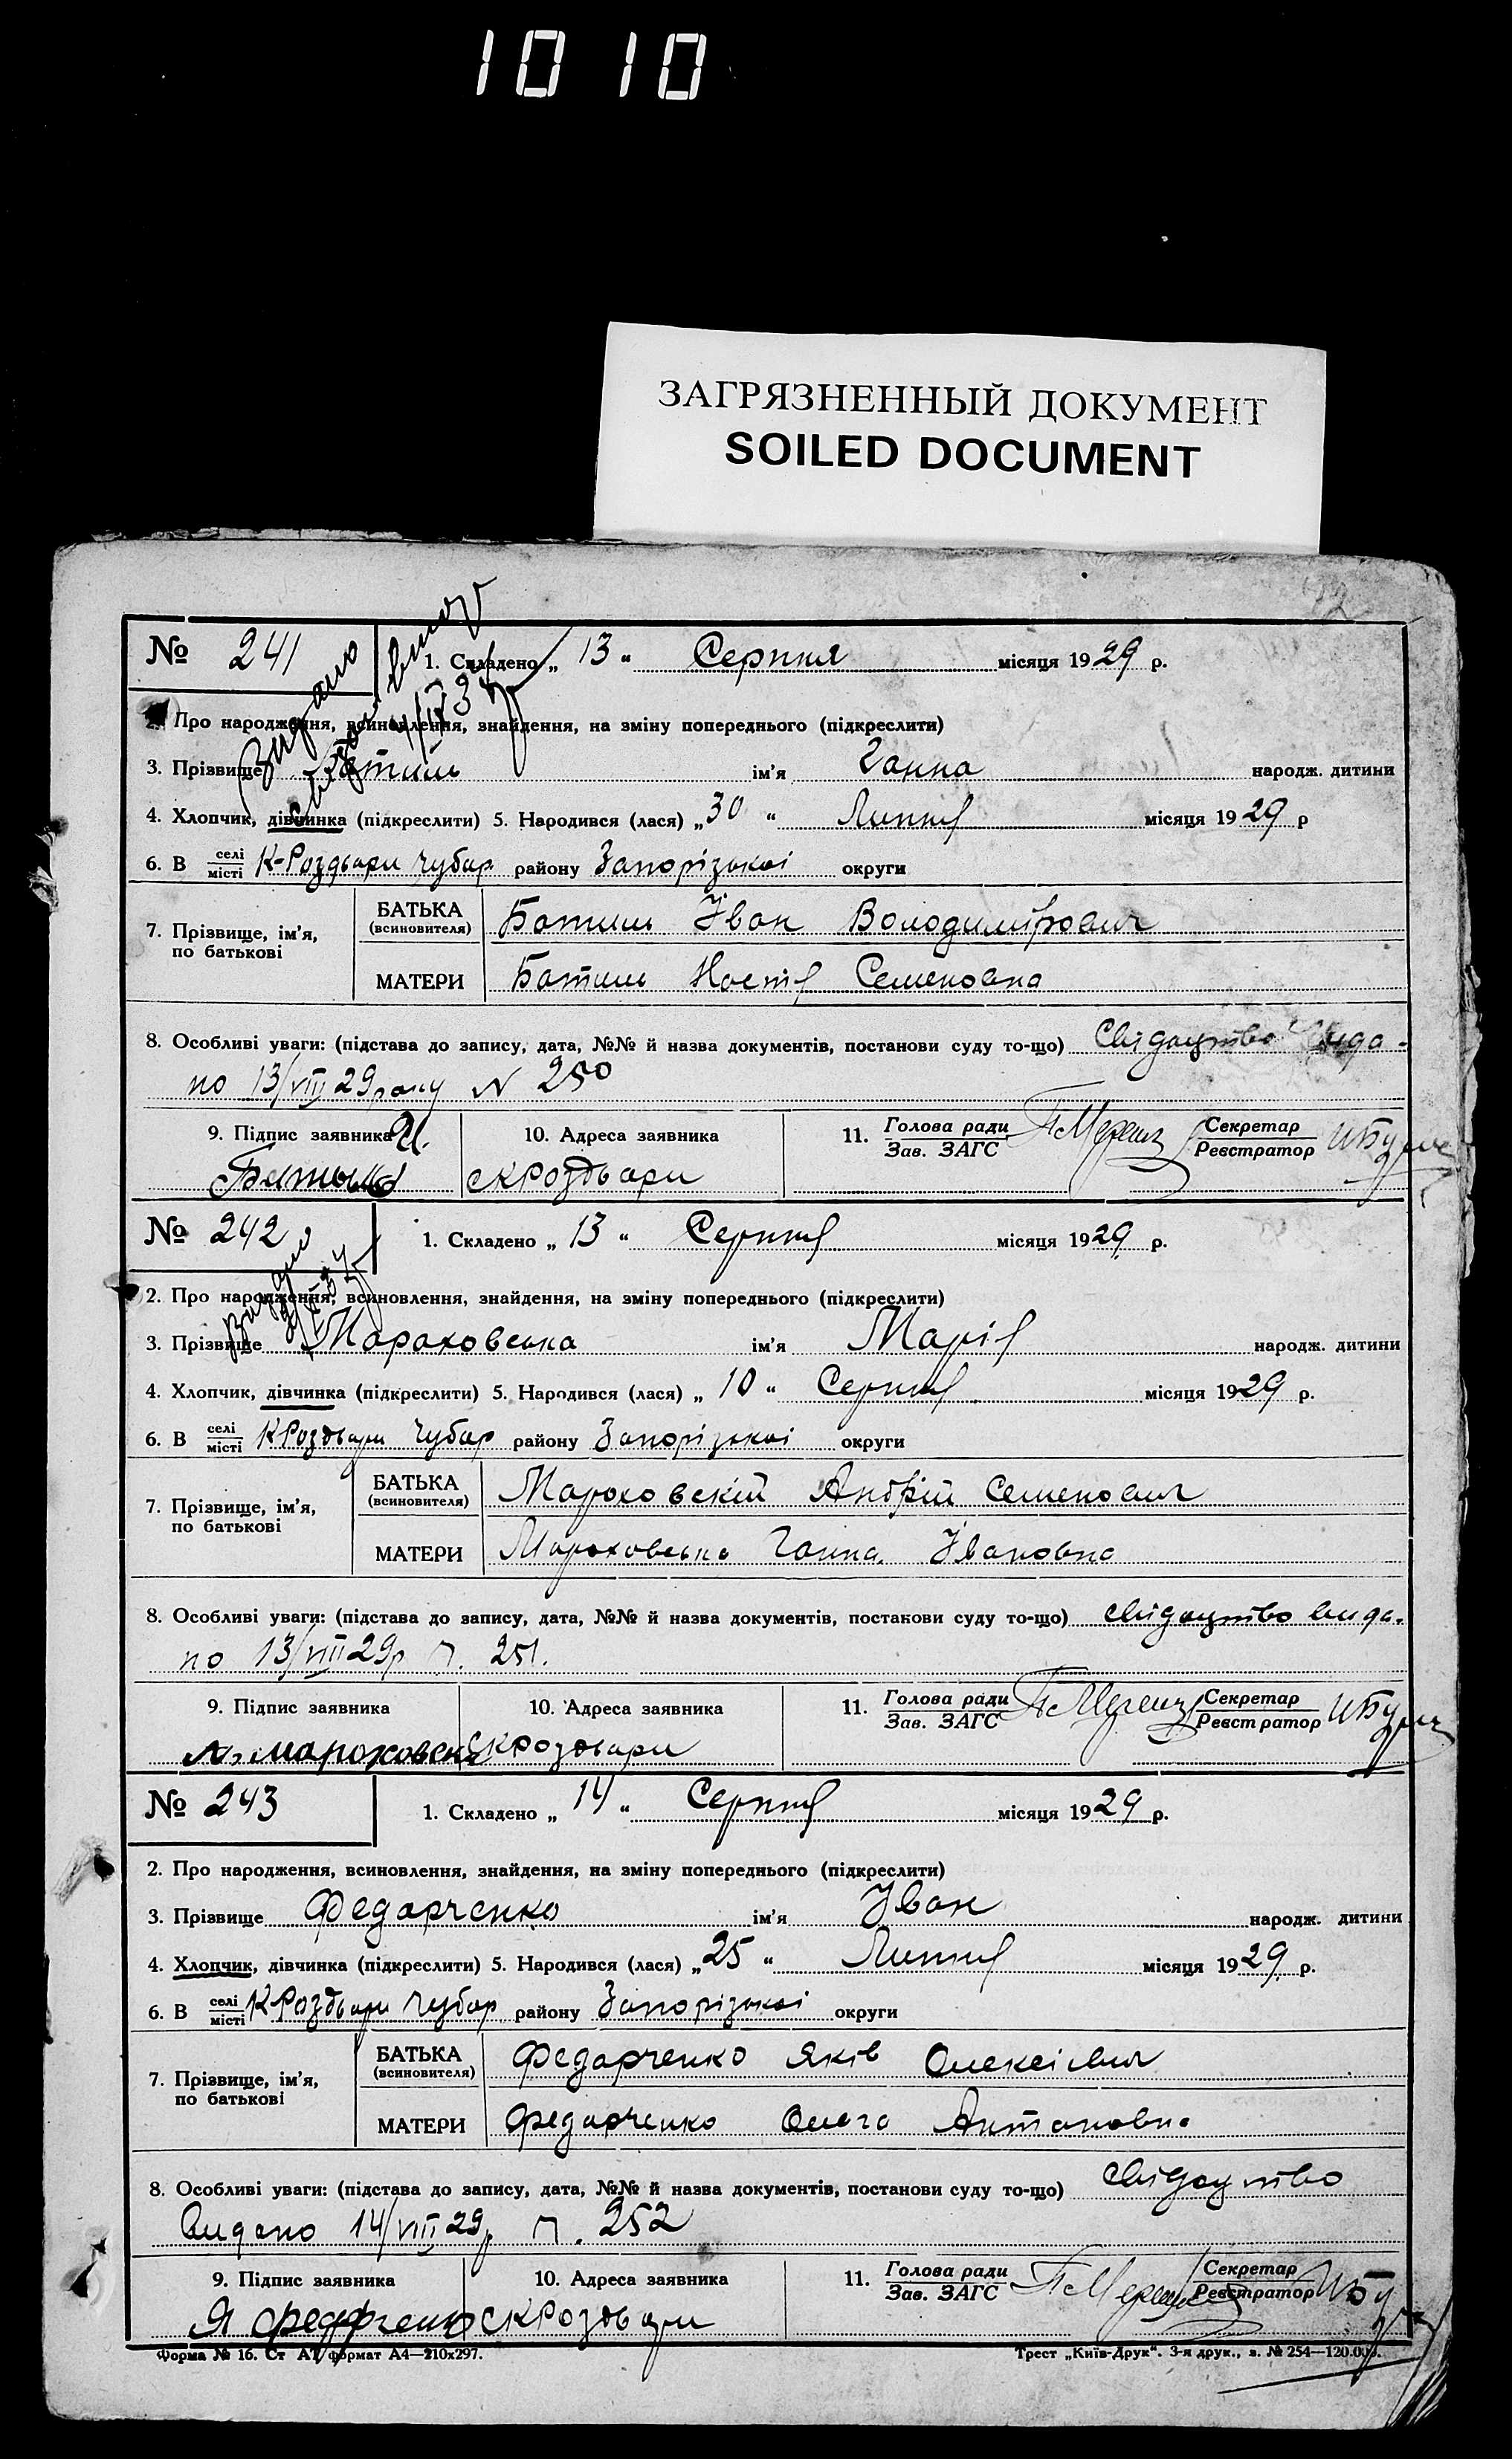 10 10
ЗАГРЯЗНЕННЫЙ ДОКУМЕНТ
SOILED DOCUMENT
72
№ 241
1. Складено „ 13 “ Серпня місяця 1929 р.
Видано
2. Про народження, всиновлення, знайдення, на зміну попереднього (підкреслити)
3. Прізвище Батиль ім'я Ганна народж. дитини
4. Хлопчик, дівчинка (підкреслити) 5. Народився (лася) „ 30 “ Липня місяця 1929 р
6. В селі місті К-Роздори Чубар району Запорізької округи
7. Прізвище, ім'я, по батькові
БАТЬКА (всиновителя) Батиль Іван Володимірович
МАТЕРИ Батиль Настя Семеновна
8. Особливі уваги: (підстава до запису, дата, №№ й назва документів, постанови суду то-що) Свідоцтво вида-
но 13/VIII 29 року N 250
9. Підпис заявника
10. Адреса заявника
11. Голова ради Зав. ЗАГС
Секретар Реєстратор
№ 242
1. Складено „ 13 “ Серпня місяця 1929 р.
Видано
2. Про народження, всиновлення, знайдення, на зміну попереднього (підкреслити)
3. Прізвище Мараховська ім'я Марія народж. дитини
4. Хлопчик, дівчинка (підкреслити) 5. Народився (лася) „ 10 “ Серпня місяця 1929 р.
6. В селі місті К Роздори Чубар району Запорізької округи
7. Прізвище, ім'я, по батькові
БАТЬКА (всиновителя) Мароховскій Андрій Семенович
МАТЕРИ Мароховська Ганна Івановна
8. Особливі уваги: (підстава до запису, дата, №№ й назва документів, постанови суду то-що) свідоцтво вида-
но 13/VIII 29р п. 251.
9. Підпис заявника
10. Адреса заявника
11. Голова ради Зав. ЗАГС
Секретар Реєстратор
№ 243
1. Складено „ 14 “ Серпня місяця 1929 р.
2. Про народження, всиновлення, знайдення, на зміну попереднього (підкреслити)
3. Прізвище Федарченко ім'я Іван народж. дитини
4. Хлопчик, дівчинка (підкреслити) 5. Народився (лася) „ 25 “ Липня місяця 1929 р.
6. В селі місті К Роздори Чубар району Запорізької округи
7. Прізвище, ім'я, по батькові
БАТЬКА (всиновителя) Федарченко Яків Олексієвич
МАТЕРИ Федарченко Ольга Антоновна
8. Особливі уваги: (підстава до запису, дата, №№ й назва документів, постанови суду то-що) свідоцтво
видано 14/VIII 29р п. 252
9. Підпис заявника
10. Адреса заявника
11. Голова ради Зав. ЗАГС
Секретар Реєстратор
Форма № 16. Ст А7 формат А4—210х297.
Трест „Київ-Друк“. 3-я друк., з. № 254—120.000.